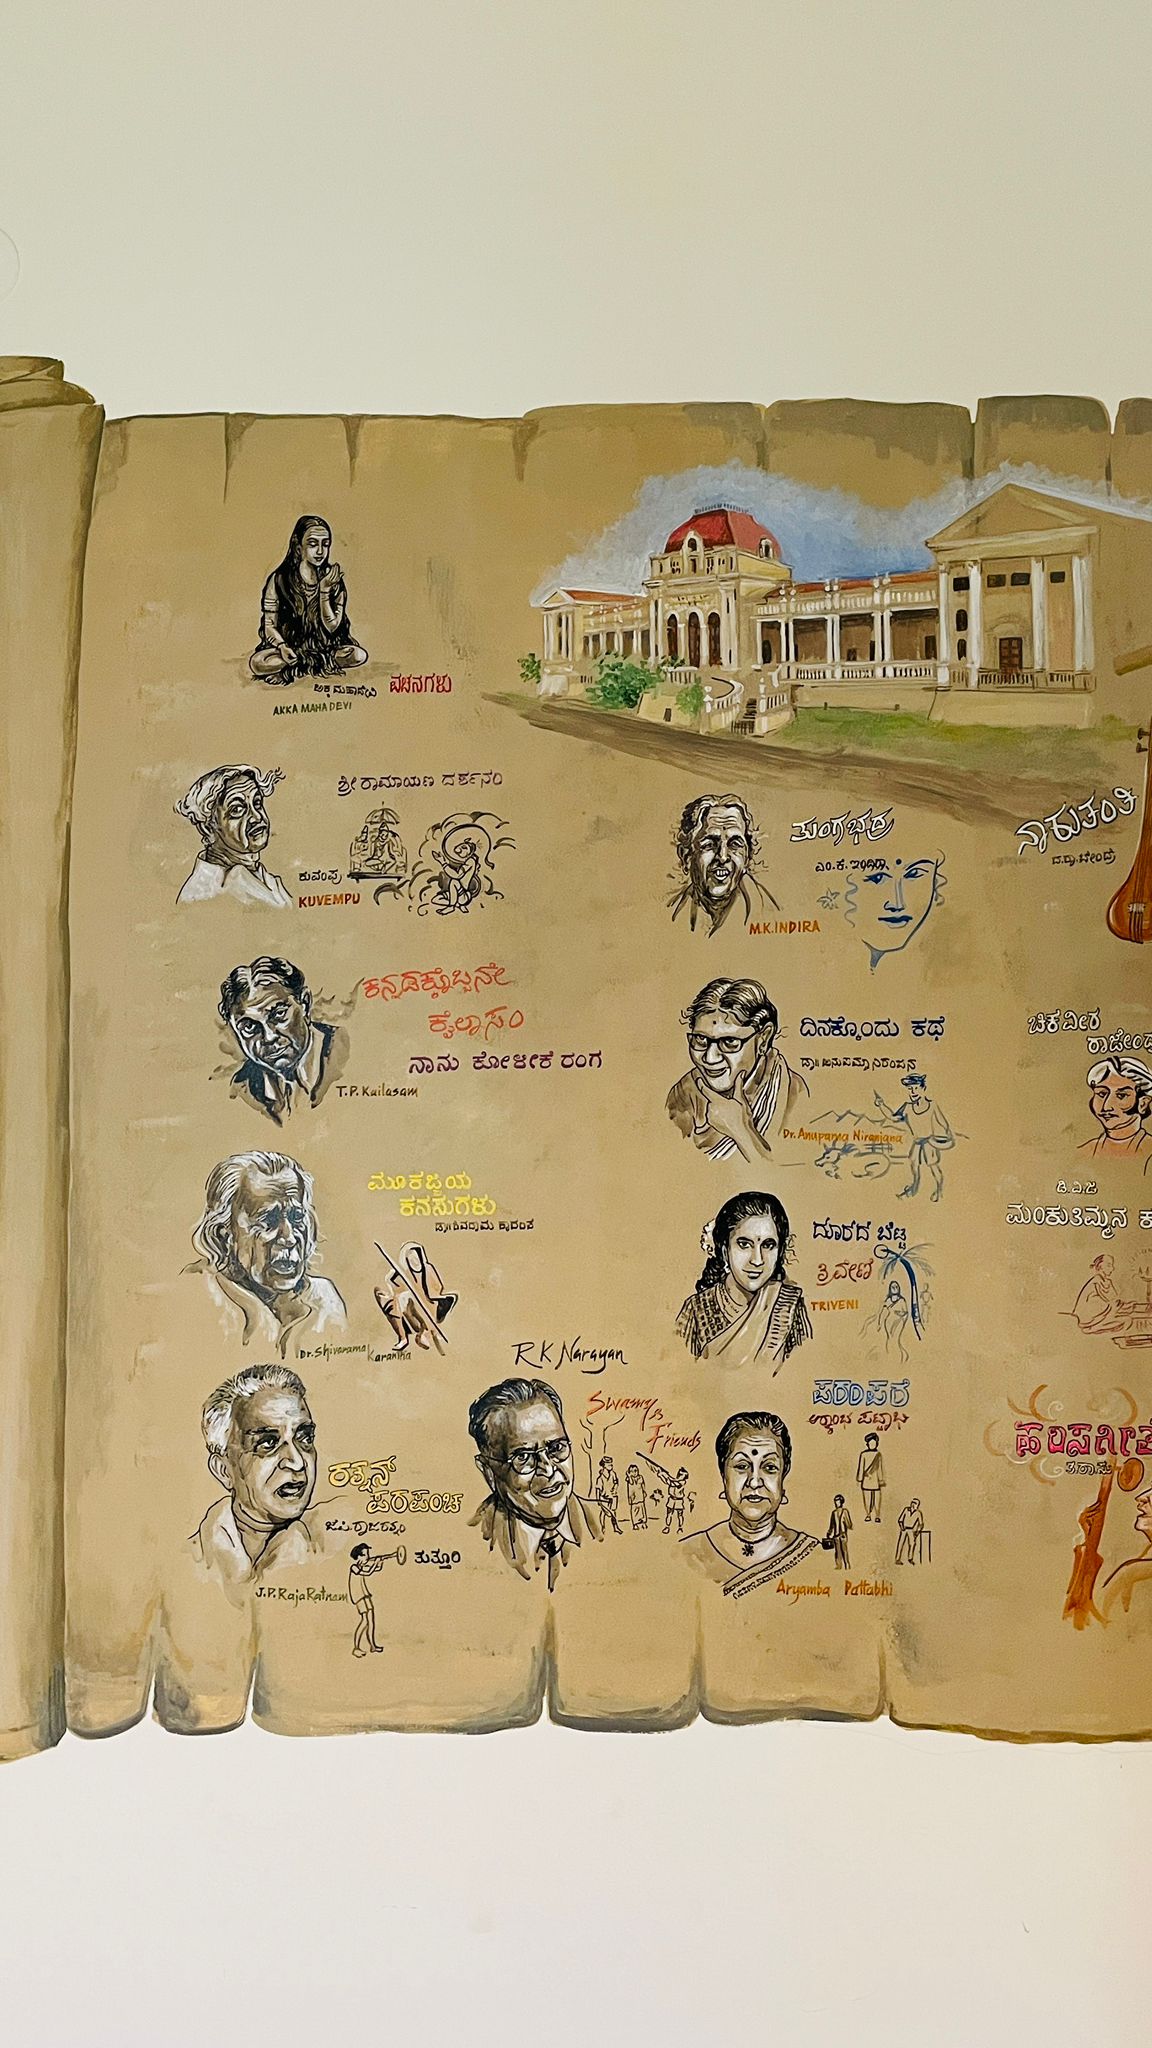 ಅಕ್ಕಮಹಾದೇವಿ
ವಚನಗಳು
AKKA MAHADEVI
ಶ್ರೀ ರಾಮಾಯಣ ದರ್ಶನಂ
ಕುವೆಂಪು
KUVEMPU
ತುಂಗಭದ್ರ
ಎಂ.ಕೆ. ಇಂದಿರಾ
M.K.INDIRA
ನಾಕುತಂತಿ
ದ.ರಾ.ಬೇಂದ್ರೆ
ಕನ್ನಡಕ್ಕೊಬ್ಬನೇ
ಕೈಲಾಸಂ
ನಾನು ಕೋಳೀಕೆ ರಂಗ
T.P. Kailasam
ದಿನಕ್ಕೊಂದು ಕಥೆ
ಡಾ|| ಅನುಪಮಾ ನಿರಂಜನ
Dr. Anupama Niranjana
ಚಿಕವೀರ
ಮೂಕಜ್ಜಿಯ
ಕನಸುಗಳು
ಡಾ||ಶಿವರಾಮ ಕಾರಂತ
Dr. Shivarama Karantha
ದೂರದ ಬೆಟ್ಟ
ತ್ರಿವೇಣಿ
TRIVENI
ಡಿ.ವಿ.ಜಿ
ಮಂಕುತಿಮ್ಮನ ಕ
R K Narayan
Swamy &
Friends
ರತ್ನನ್
ಪರಪಂಚ
ಜಿ.ಪಿ.ರಾಜರತ್ನಂ
ತುತ್ತೂರಿ
J.P. RajaRatnam
ಪರಂಪರೆ
ಆರ್ಯಾಂಬ ಪಟ್ಟಾಭಿ
Aryamba Pattabhi
ಹರಿಸಗೀತೆ